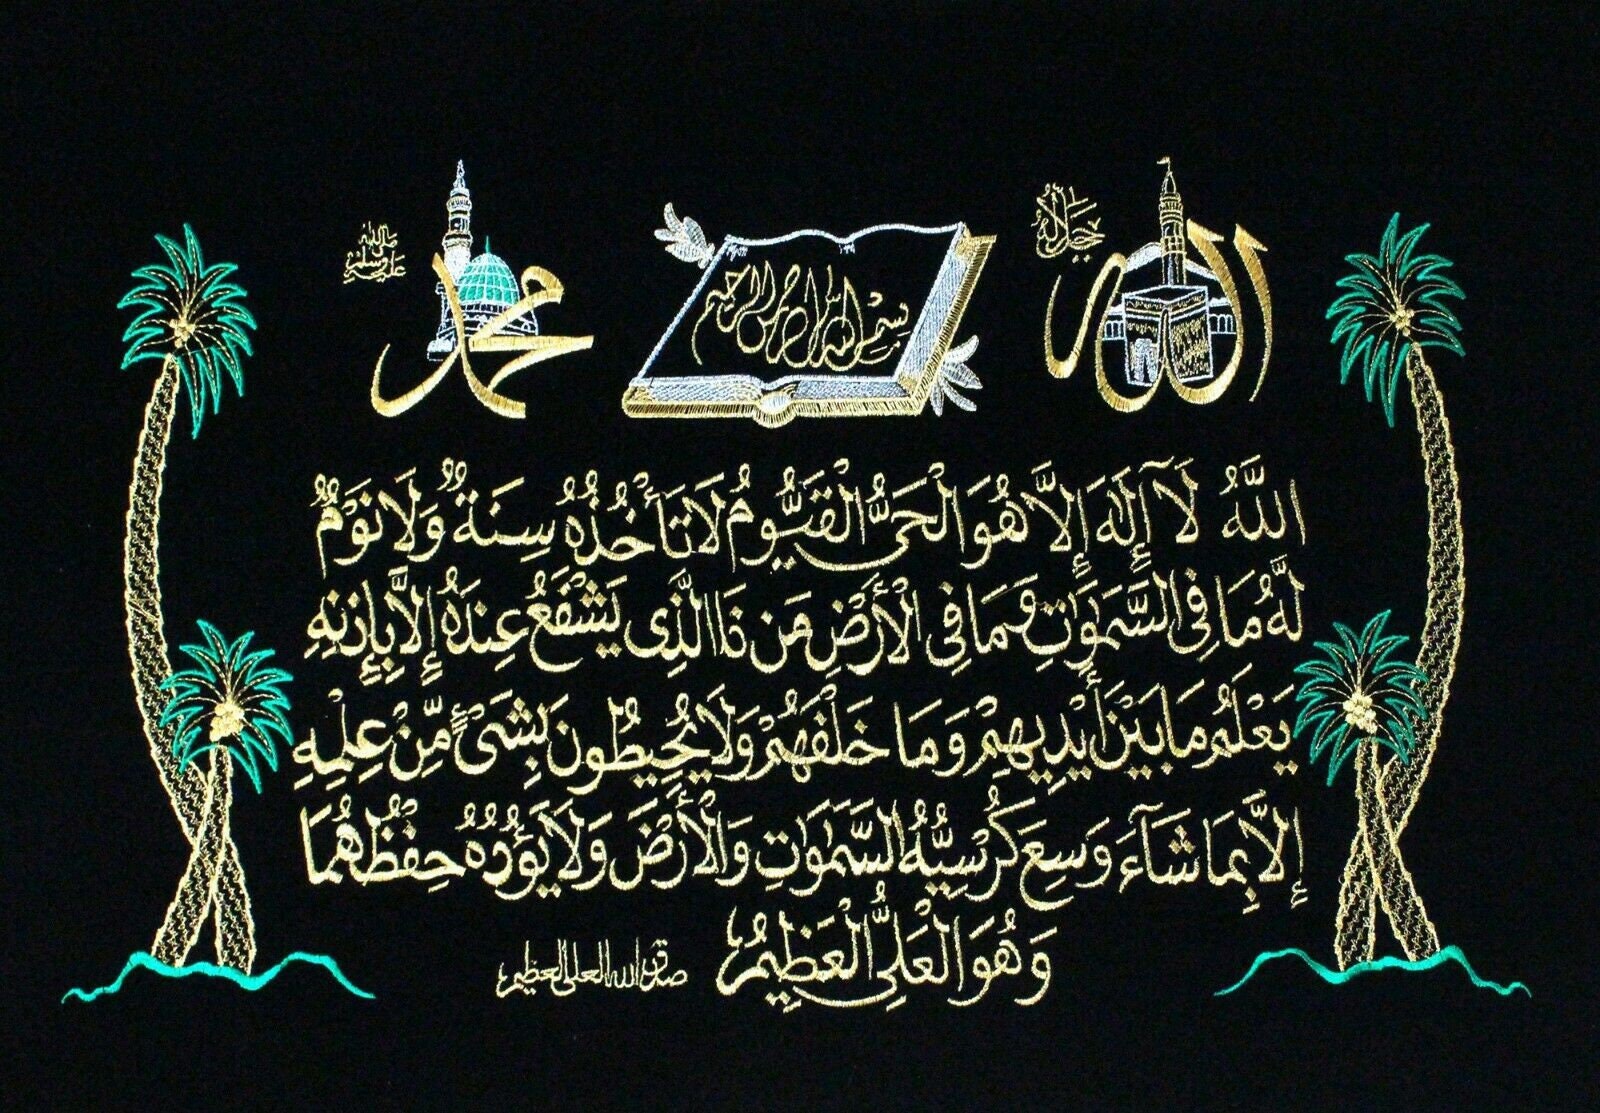 الله جل جلاله
بسم الله الرحمن الرحيم
محمد صلى الله عليه وسلم
اللَّهُ لَآ إِلَٰهَ إِلَّا هُوَ الْحَيُّ الْقَيُّومُ لَا تَأْخُذُهُ سِنَةٌ وَلَا نَوْمٌ
لَهُ مَا فِي السَّمَٰوَاتِ وَمَا فِي الْأَرْضِ مَن ذَا الَّذِي يَشْفَعُ عِندَهُ إِلَّا بِإِذْنِهِ
يَعْلَمُ مَا بَيْنَ أَيْدِيهِمْ وَمَا خَلْفَهُمْ وَلَا يُحِيطُونَ بِشَيْءٍ مِّنْ عِلْمِهِ
إِلَّا بِمَا شَآءَ وَسِعَ كُرْسِيُّهُ السَّمَٰوَاتِ وَالْأَرْضَ وَلَا يَؤُدُهُ حِفْظُهُمَا
وَهُوَ الْعَلِيُّ الْعَظِيمُ صدق الله العلي العظيم